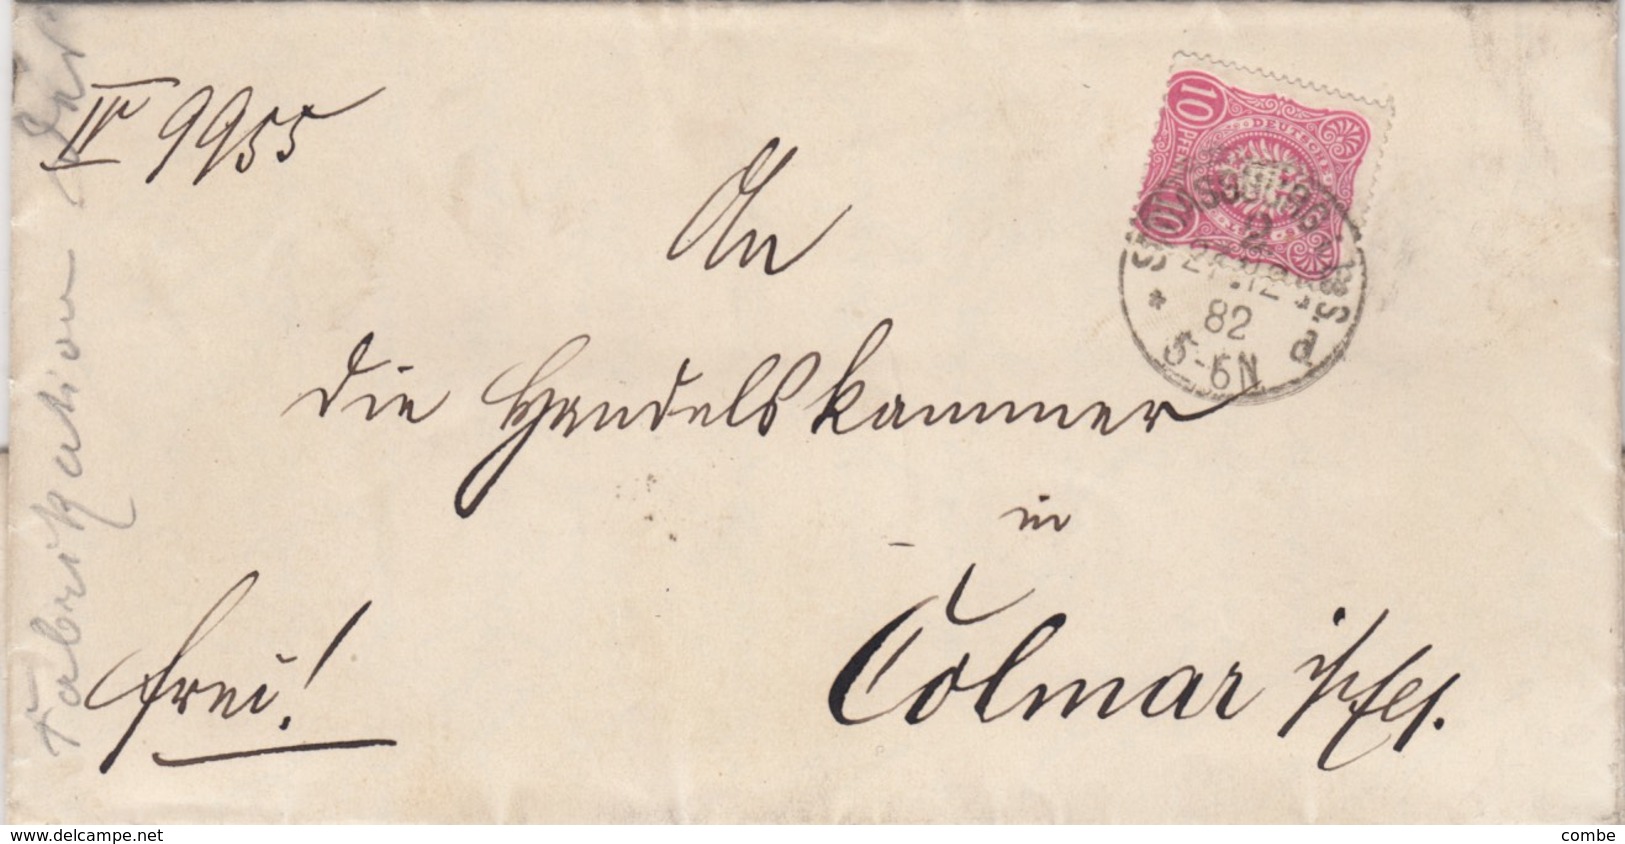 IV 9955
An
die Handelskammer
in
Colmar i/Els.
frei!
Fabrikation
10 PFENNIG
DEUTSCHE
10
STRASSBURG i. ELS.
2
12
82
5-6N
d
www.delcampe.net
combe